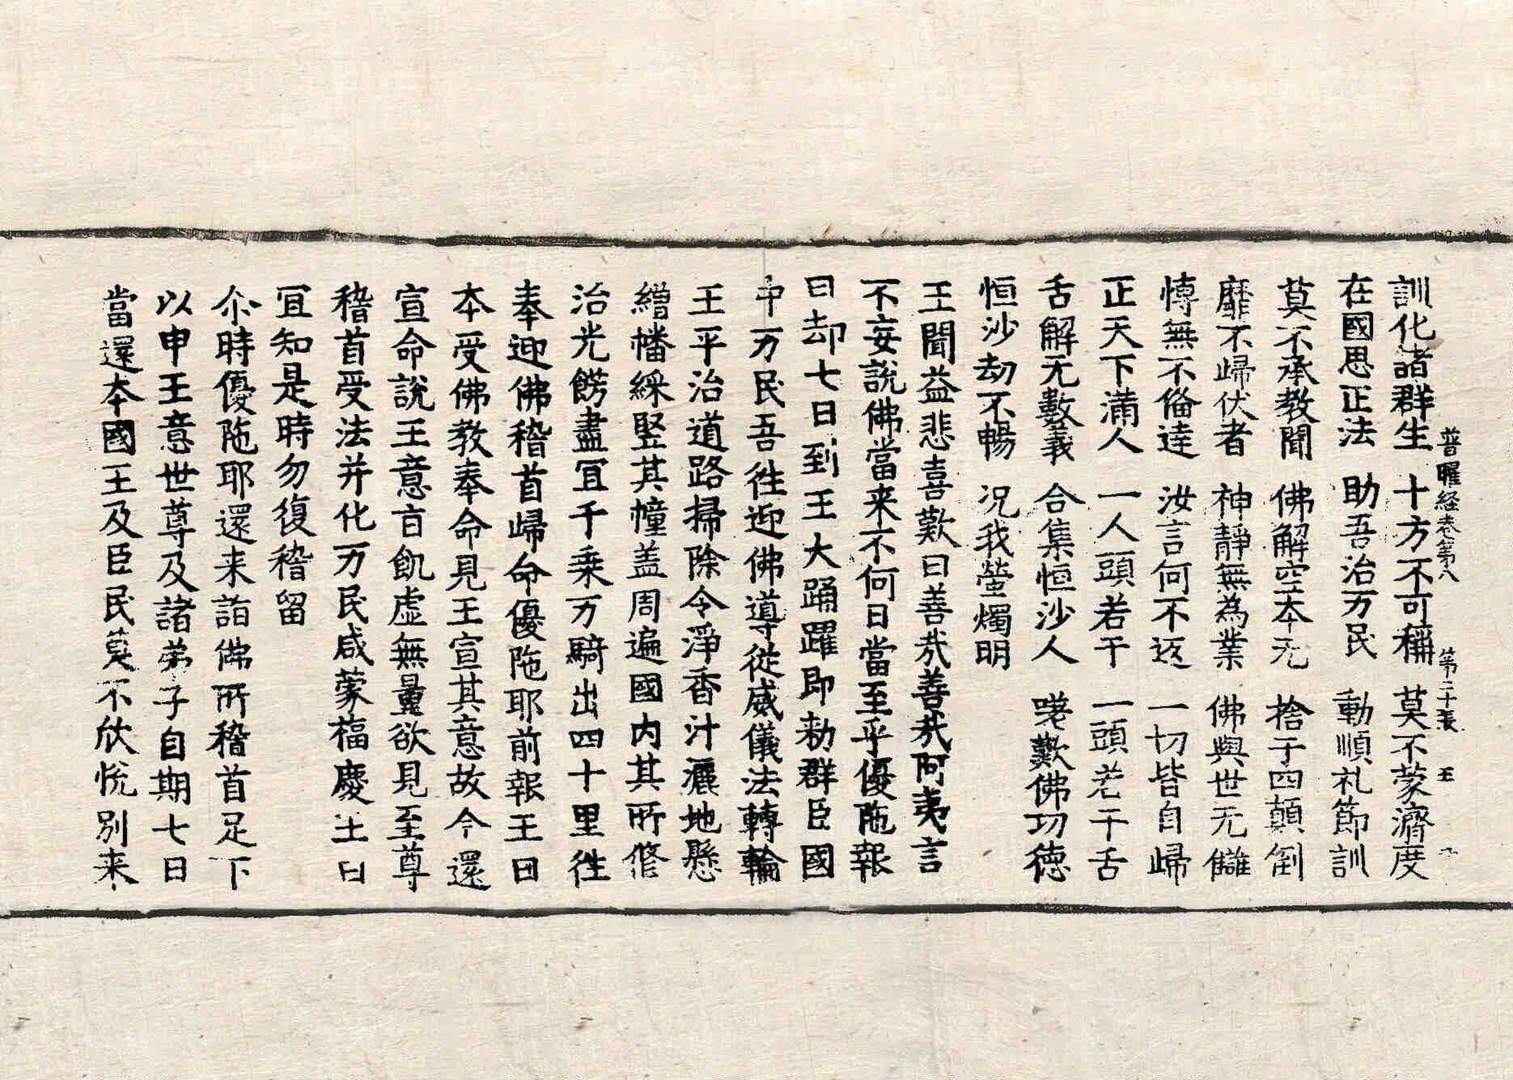 普曜経卷第八 第二十張 王
訓化諸群生 十方不可稱 莫不蒙濟度
在國思正法 助吾治万民 動順礼節訓
莫不承教聞 佛解空本无 捨子四顛倒
靡不歸伏者 神靜無為業 佛與世无讎
博無不俻達 汝言何不返 一切皆自歸
正天下滿人 一人頭若干 一頭若干舌
舌解无數義 合集恒沙人 嗟歎佛功徳
恒沙劫不暢 况我螢燭明
王聞益悲喜歎曰善㢤善㢤阿夷言
不妄說佛當来不何日當至乎優陁報
曰却七日到王大踊躍即勑群臣國
中万民吾往迎佛導従威儀法轉輪
王平治道路掃除令淨香汁灑地懸
繒幡綵竪其幢盖周遍國内其所修
治光餝盡冝千乗万騎出四十里往
奉迎佛稽首歸命優陁耶前報王曰
本受佛教奉命見王宣其意故今還
宣命說王意言飢虚無量欲見至尊
稽首受法并化万民咸蒙福慶王曰
冝知是時勿復稽留
尒時優陁耶還来詣佛所稽首足下
以申王意世尊及諸弟子自期七日
當還本國王及臣民莫不欣恱別来